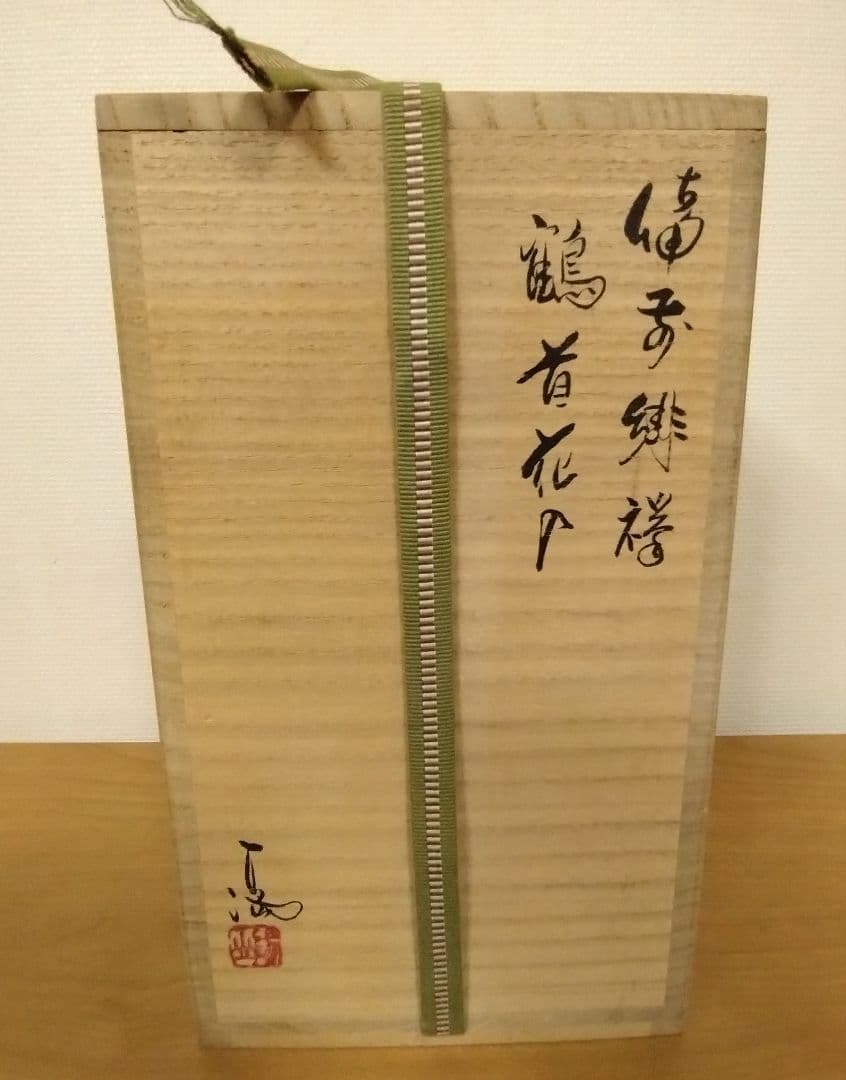 備前緋襷
鶴首花入